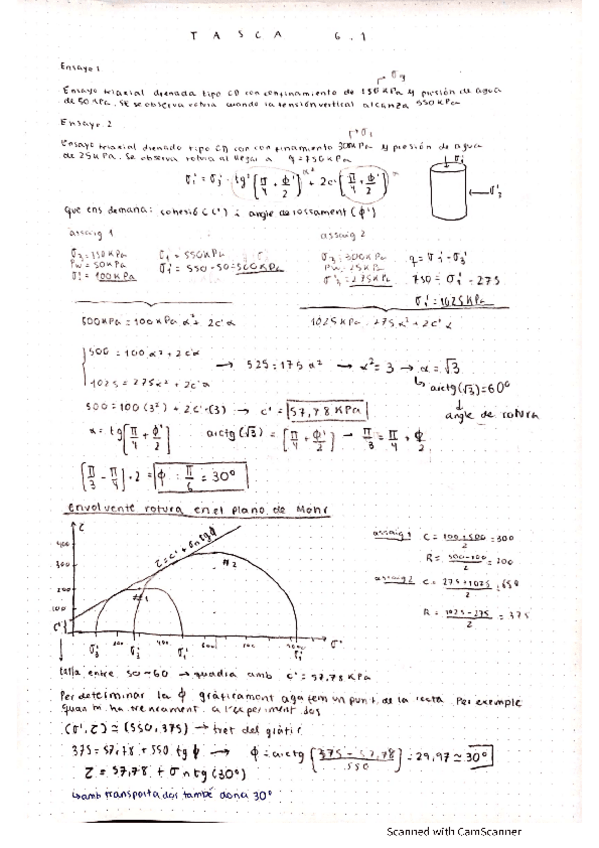 TASCA 6.1
Ensayo 1
Ensayo triaxial drenada tipo CD con confinamiento de 150 kPa y presión de agua
de 50 kPa. Se observa rotura cuando la tensión vertical alcanza 550 kPa
Ensayo 2
Ensayo triaxial drenado tipo CD con confinamiento 300 kPa y presión de agua
de 25 kPa. Se observa rotura al llegar a q = 750 kPa
Que ens demana: cohesió (c') i angle de rossament (ϕ')
assaig 1
σ3 = 150 kPa σ1 = 550 kPa
Pw = 50 kPa σ1' = 550 - 50 = 500 kPa
σ3' = 100 kPa
assaig 2
σ3 = 300 kPa q = σ1' - σ3'
Pw = 25 kPa
σ3' = 275 kPa 750 = σ1' - 275
σ1' = 1025 kPa
500 kPa = 100 kPa α² + 2c'α
1025 kPa = 275 α² + 2c'α
500 = 100 α² + 2c'α
1025 = 275 α² + 2c'α
→ 525 = 175 α² → α² = 3 → α = √3
arctg(√3) = 60º
angle de rotura
500 = 100 (3²) + 2c'·(3) → c' = 57,78 kPa
α = tg[π/4 + ϕ'/2] arctg(√3) = [π/4 + ϕ'/2] → π/3 = π/4 + ϕ/2
[π/3 - π/4]·2 = ϕ = π/6 = 30º
Envolvente rotura en el plano de Mohr
τ
τ = c' + σn tg ϕ
#1
#2
assaig 1 C = 100+500/2 = 300
R = 500-100/2 = 200
assaig 2 C = 275+1025/2 = 650
R = 1025-275/2 = 375
talla entre 50~60 → quadra amb c' = 57,78 kPa
Per determinar la ϕ gràficament agafem un punt de la recta. Per exemple
(σ', τ) ≃ (550, 375) → tret del gràfic
375 = 57,78 + 550 tg ϕ → ϕ = arctg [375 - 57,78/550] = 29,97 ≃ 30º
τ = 57,78 + σn tg(30º)
amb transportador també dona 30º
Scanned with CamScanner